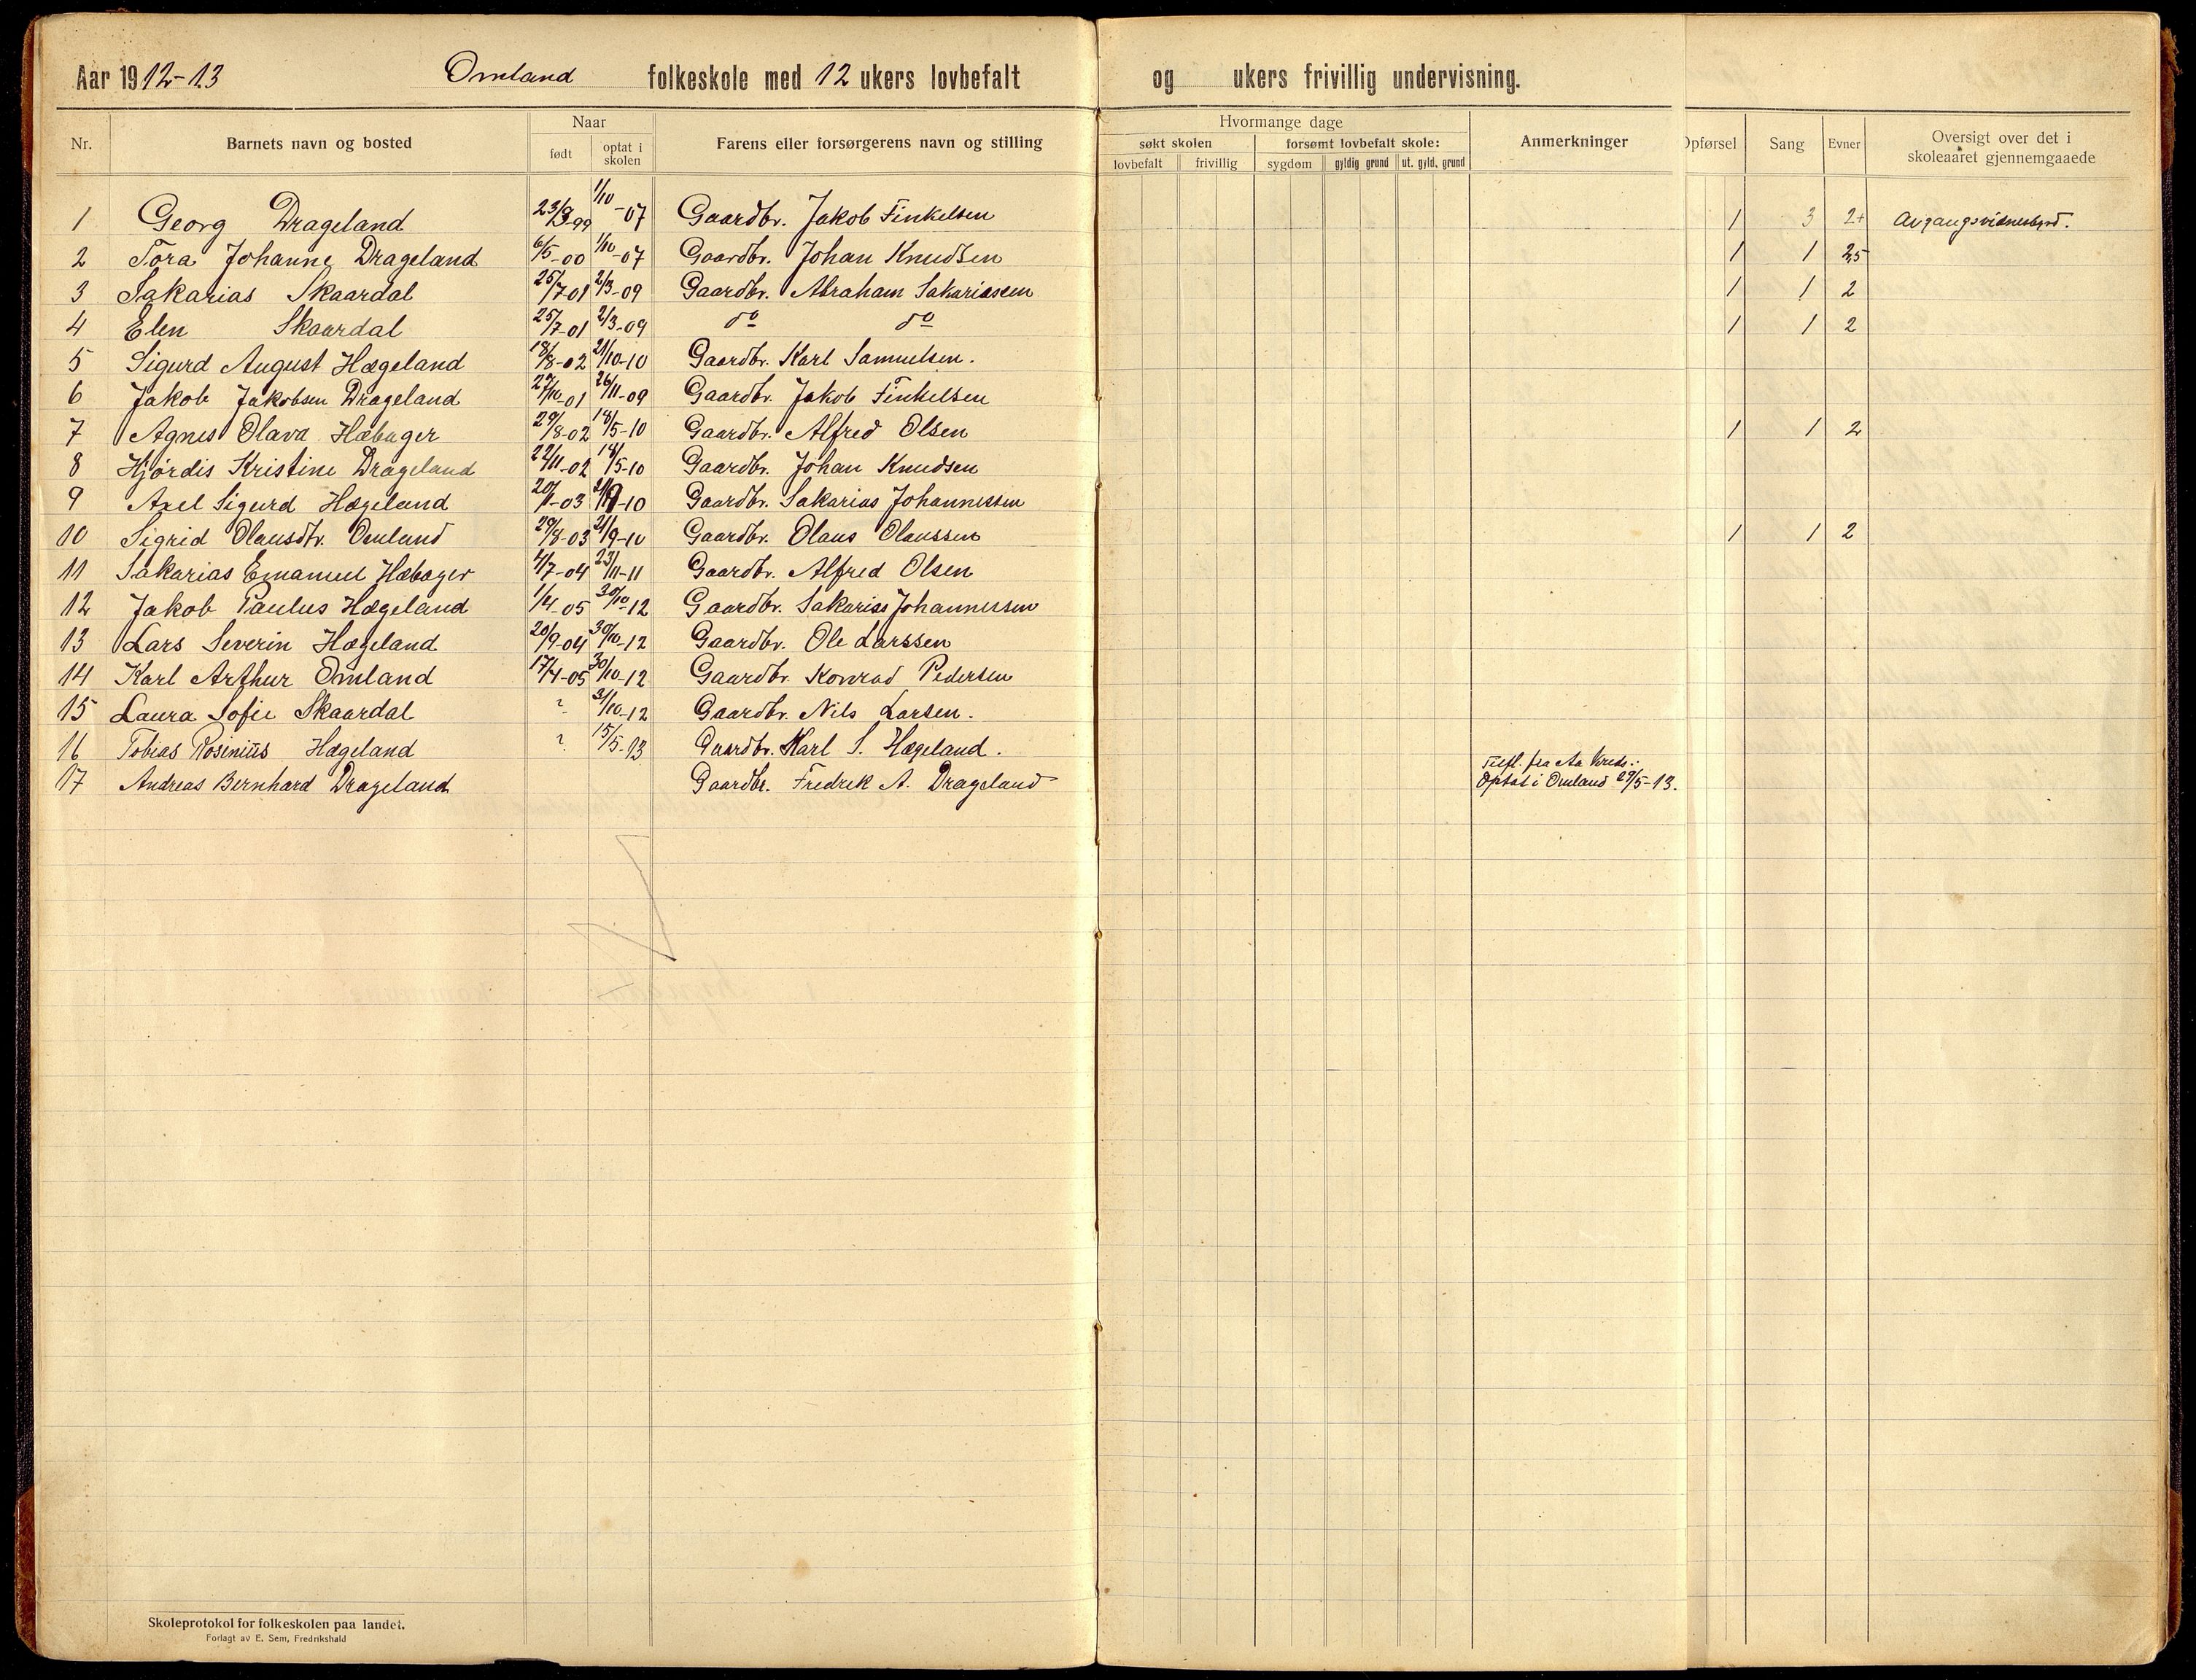 Aar 1912-13 Omland folkeskole med 12 ukers lovbefalt og ukers frivillig undervisning.
Nr. Barnets navn og bosted Naar født optat i skolen Farens eller forsørgerens navn og stilling Hvormange dage søkt skolen lovbefalt frivillig forsømt lovbefalt skole: sygdom gyldig grund ut. gyld. grund Anmerkninger Opførsel Sang Evner Oversigt over det i skoleaaret gjennemgaaede
1 Georg Drageland 23/3-99 1/10-07 Gaardbr. Jakob Finkelsen 1 3 2+ Avgangsvidnesbyrd.
2 Tora Johanne Drageland 6/5-00 1/10-07 Gaardbr. Johan Knudsen 1 1 2,5
3 Sakarias Skaardal 25/7-01 2/3-09 Gaardbr. Abraham Sakariassen 1 1 2
4 Elen Skaardal 25/7-01 2/3-09 do do 1 1 2
5 Sigurd August Hægeland 18/8-02 21/10-10 Gaardbr. Karl Samuelsen.
6 Jakob Jakobsen Drageland 27/10-01 26/11-09 Gaardbr. Jakob Finkelsen
7 Agnes Olava Hæbager 29/8-02 18/5-10 Gaardbr. Alfred Olsen 1 1 2
8 Hjørdis Kristine Drageland 22/11-02 18/5-10 Gaardbr. Johan Knudsen
9 Axel Sigurd Hægeland 20/1-03 21/9-10 Gaardbr. Sakarias Johannessen
10 Sigrid Olausdtr. Omland 29/8-03 21/9-10 Gaardbr. Olaus Olaussen 1 1 2
11 Sakarias Emanuel Hæbager 4/7-04 23/11-11 Gaardbr. Alfred Olsen
12 Jakob Paulus Hægeland 1/4-05 30/10-12 Gaardbr. Sakarias Johannessen
13 Lars Severin Hægeland 20/9-04 30/10-12 Gaardbr. Ole Larssen
14 Karl Arthur Omland 17/4-05 30/10-12 Gaardbr. Konrad Pedersen
15 Laura Sofie Skaardal ? 31/10-12 Gaardbr. Nils Larsen.
16 Tobias Rosinius Hægeland ? 15/5-13 Gaardbr. Karl S. Hægeland.
17 Andreas Bernhard Drageland Gaardbr. Fredrek A. Drageland Tilfl. fra Aa kreds.:
Optat i Omland 29/5-13.
Skoleprotokol for folkeskolen paa landet.
Forlagt av E. Sem, Fredrikshald